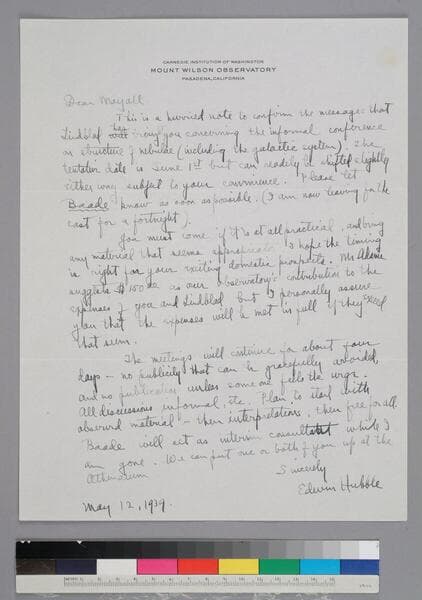 CARNEGIE INSTITUTION OF WASHINGTON
MOUNT WILSON OBSERVATORY
PASADENA, CALIFORNIA
Dear Mayall
This is a hurried note to confirm the message that
Lindblad will bring you concerning the informal conference
on structure of nebulae (including the galactic system). The
tentative date is June 1st but can readily be shifted slightly
either way subject to your convenience. Please let
Baade know as soon as possible. (I am now leaving for the
east for a fortnight).
You must come if it is at all practical, and bring
any material that seems appropriate. I hope the timing
is right for your exciting domestic prospects. Mr Adams
suggests $150.00 as our observatory's contribution to the
expenses of you and Lindblad but I personally assure
you that the expenses will be met in full if they exceed
that sum.
The meetings will continue for about four
days - no publicity that can be gracefully avoided,
and no publication unless some one feels the urge.
All discussions informal, etc. Plan to start with
observed material - then interpretations, then free for all.
Baade will act as interim consultant while I
am gone. We can put one or both of you up at the
Athenaeum
Sincerely
Edwin Hubble
May 12, 1939.